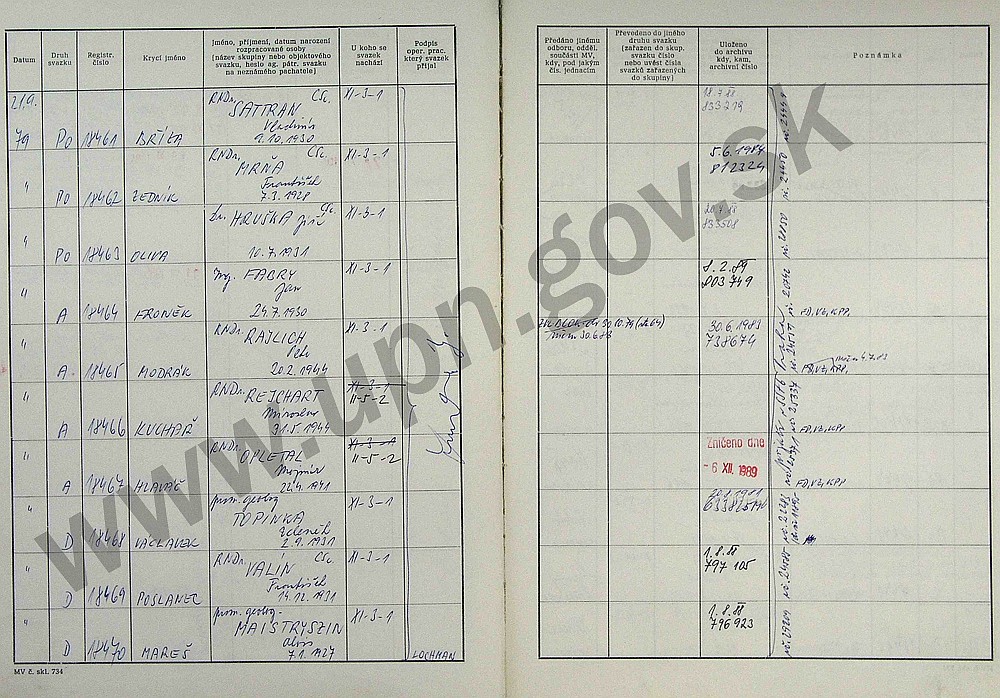 Datum
Druh svazku
Registr. číslo
Krycí jméno
Jméno, příjmení, datum narození
rozpracované osoby
(název skupiny nebo objektového
svazku, heslo ag. pátr. svazku
na neznámého pachatele)
U koho se
svazek
nachází
Podpis
oper. prac.
který svazek
přijal
Předáno jinému
odboru, odděl.
součásti MV,
kdy, pod jakým
čís. jednacím
Převedeno do jiného
druhu svazku
(zařazen do skup.
svazku číslo
nebo uvést čísla
svazků zařazených
do skupiny)
Uloženo
do archivu
kdy, kam,
archivní číslo
Poznámka
21.9.
79 Po 18461 BŘÍZA
RNDr. CSc. XI-3-1
SATTRAN
Vladimír
9.10.1930
18.7.88
833219
" Po 18462 ZEDNÍK
RNDr. CSc. XI-3-1
MRŇA
František
7.3.1928
5.6.1984
812324
" Po 18463 OLIVA
Dr. HRUŠKA Jiří CSc. XI-3-1
10.7.1931
20.7.88
833508
" A 18464 FRONĚK
Ing. FABRY XI-3-1
Jan
24.7.1930
8.2.89
803749
FD,VZ,KPP,
" A 18465 MODRÁK
RNDr. RAJLICH XI-3-1
Petr
20.2.1944
30.6.1983
738674
FD,VZ,KPP,
" A 18466 KUCHAŘ
RNDr. REJCHART XI-3-1
II-5-2
Miroslav
31.5.1944
FD,VZ,KPP
" A 18467 HLAVÁČ
RNDr. OPLETAL XI-3-1
II-5-2
Mojmír
22.4.1941
Zničeno dne
-6 XII. 1989
FD,VZ,KPP
" D 18468 VÁCLAVEK
prom. geolog XI-3-1
TOPINKA
Zdeněk
2.9.1931
" D 18469 POSLANEC
RNDr. CSc. XI-3-1
VALIN
František
14.12.1931
1.8.88
797 105
" D 18470 MAREŠ
prom. geolog. XI-3-1
MAISTRYSZIN
Alois
7.1.1927
LOCHMAN
1.8.88
796923
MV č. skl. 734
www.upn.gov.sk